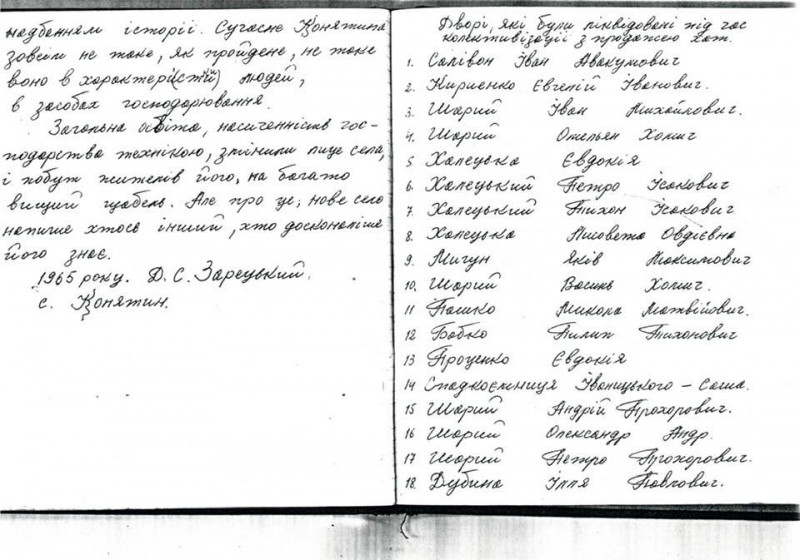 надбанням історії. Сучасне Конятина
зовсім не таке, як пройдене, не таке
воно в характері(стиці) людей,
в засобах господарювання.
Загальна освіта, насиченність гос-
подарства технікою, змінили лице села,
і побут жителів його, на багато
вищий щабель. Але про це, нове село
напише хтось інший, хто досконаліше
його знає.
1965 року. Д. С. Зарецький.
с. Конятин.
Дворі, які були ліквідовані під час
колективізації з продажею хат.
1. Салівон Іван Авакумович
2. Кириенко Євгеній Іванович.
3. Шарий Іван Михайлович.
4. Шарий Омельян Хомич
5 Халецька Євдокія
6. Халецький Петро Ісакович
7. Халецький Тихон Ісакович
8. Халецька Лисовета Овдіївна
9. Мигун Яків Максимович
10. Шарий Василь Хомич.
11 Пашко Микола Матвійович.
12 Бабко Пилип Тихонович
13 Проценко Євдокія
14 Спадкоємниця Іваницького – Саша.
15 Шарий Андрій Прохорович.
16 Шарий Олександр Андр.
17 Шарий Петро Прохорович.
18. Дубина Ілля Павлович.